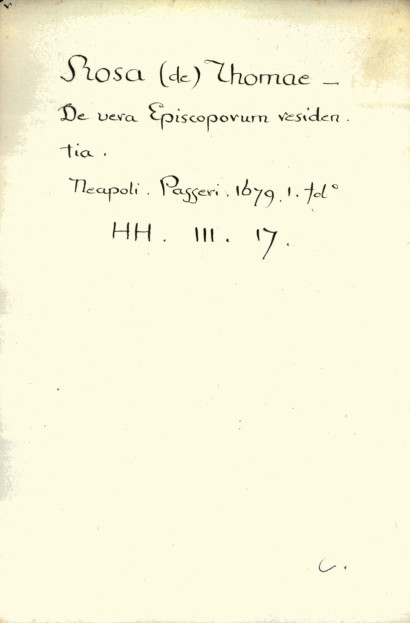 Rosa (de) Thomae —
De vera Episcoporum residen.
tia.
Neapoli. Passeri. 1679. 1. fol°
HH. III. 17.
C.